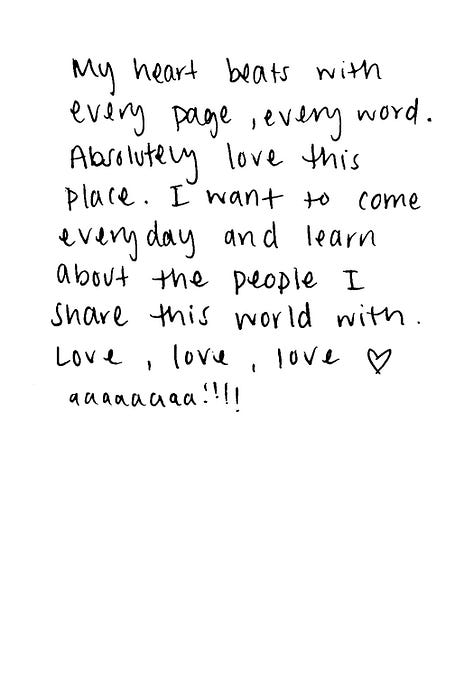 My heart beats with
every page , every word.
Absolutely love this
place. I want to come
everyday and learn
about the people I
share this world with.
Love , love , love ♡
aaaaaaaa!!!!